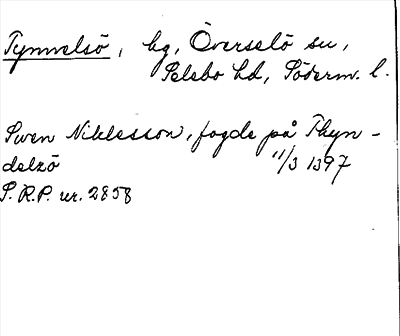 Tynnelsö, bg, Överselö sn,
Selebo hd, Söderm. l.
Swen Niklesson, fogde på Thyn-
delzö 11/3 1397
S.R.P. nr. 2858